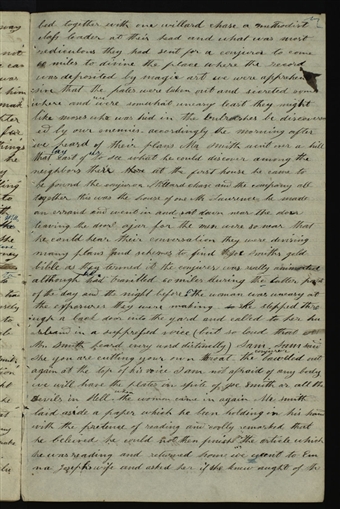 led together with one willard chase a methodist
class leader at their head and what was most
rediculous they had sent for a conjuror to come
60 miles to divine the place where the record
was deposited by magic art we were apprehen
sive that the plates were taken out and secreted some
where and we were somewhat uneasy least they might
like moses who was hid in the bulrushes be discovered
ed by our enemies accordingly the morning after
we heard of their plans Mr Smith went over a hill
that lay east of us to see what he could discover among the
neighbors there at the first house he came to
he found the conjuror Willard chase and the company all
together this was the house of one Mr Laurence he made
an errand and went in and sat down near the door
leaving the door ajar for the men were so near that
he could hear their conversation they were devising
many plans and schemes to find Joe smiths gold
bible as they termed it the conjuror was really animated
although he had travelled 60 miles during the latter part
of the day and the night before the woman was uneasy at
the exposures they were making she stepped thro
ugh a back door into the yard and called to her hus
band in a suppressed voice (but so loud that
Mr Smith heard every word distinctly) Sam, Sam said
she you are cutting your own throat the conjuror bawled out
again at the top of his voice I am not afraid of any body
we will have the plates in spite of Joe Smith or all the
Devils in Hell when the woman came in again Mr Smith
laid aside a paper which he been holding in his hand
with the pretense of reading and coolly remarked that
he believed he would not then finish the article which
he was reading and returned home we went to Em
ma Josephs wife and asked her if she knew aught of the